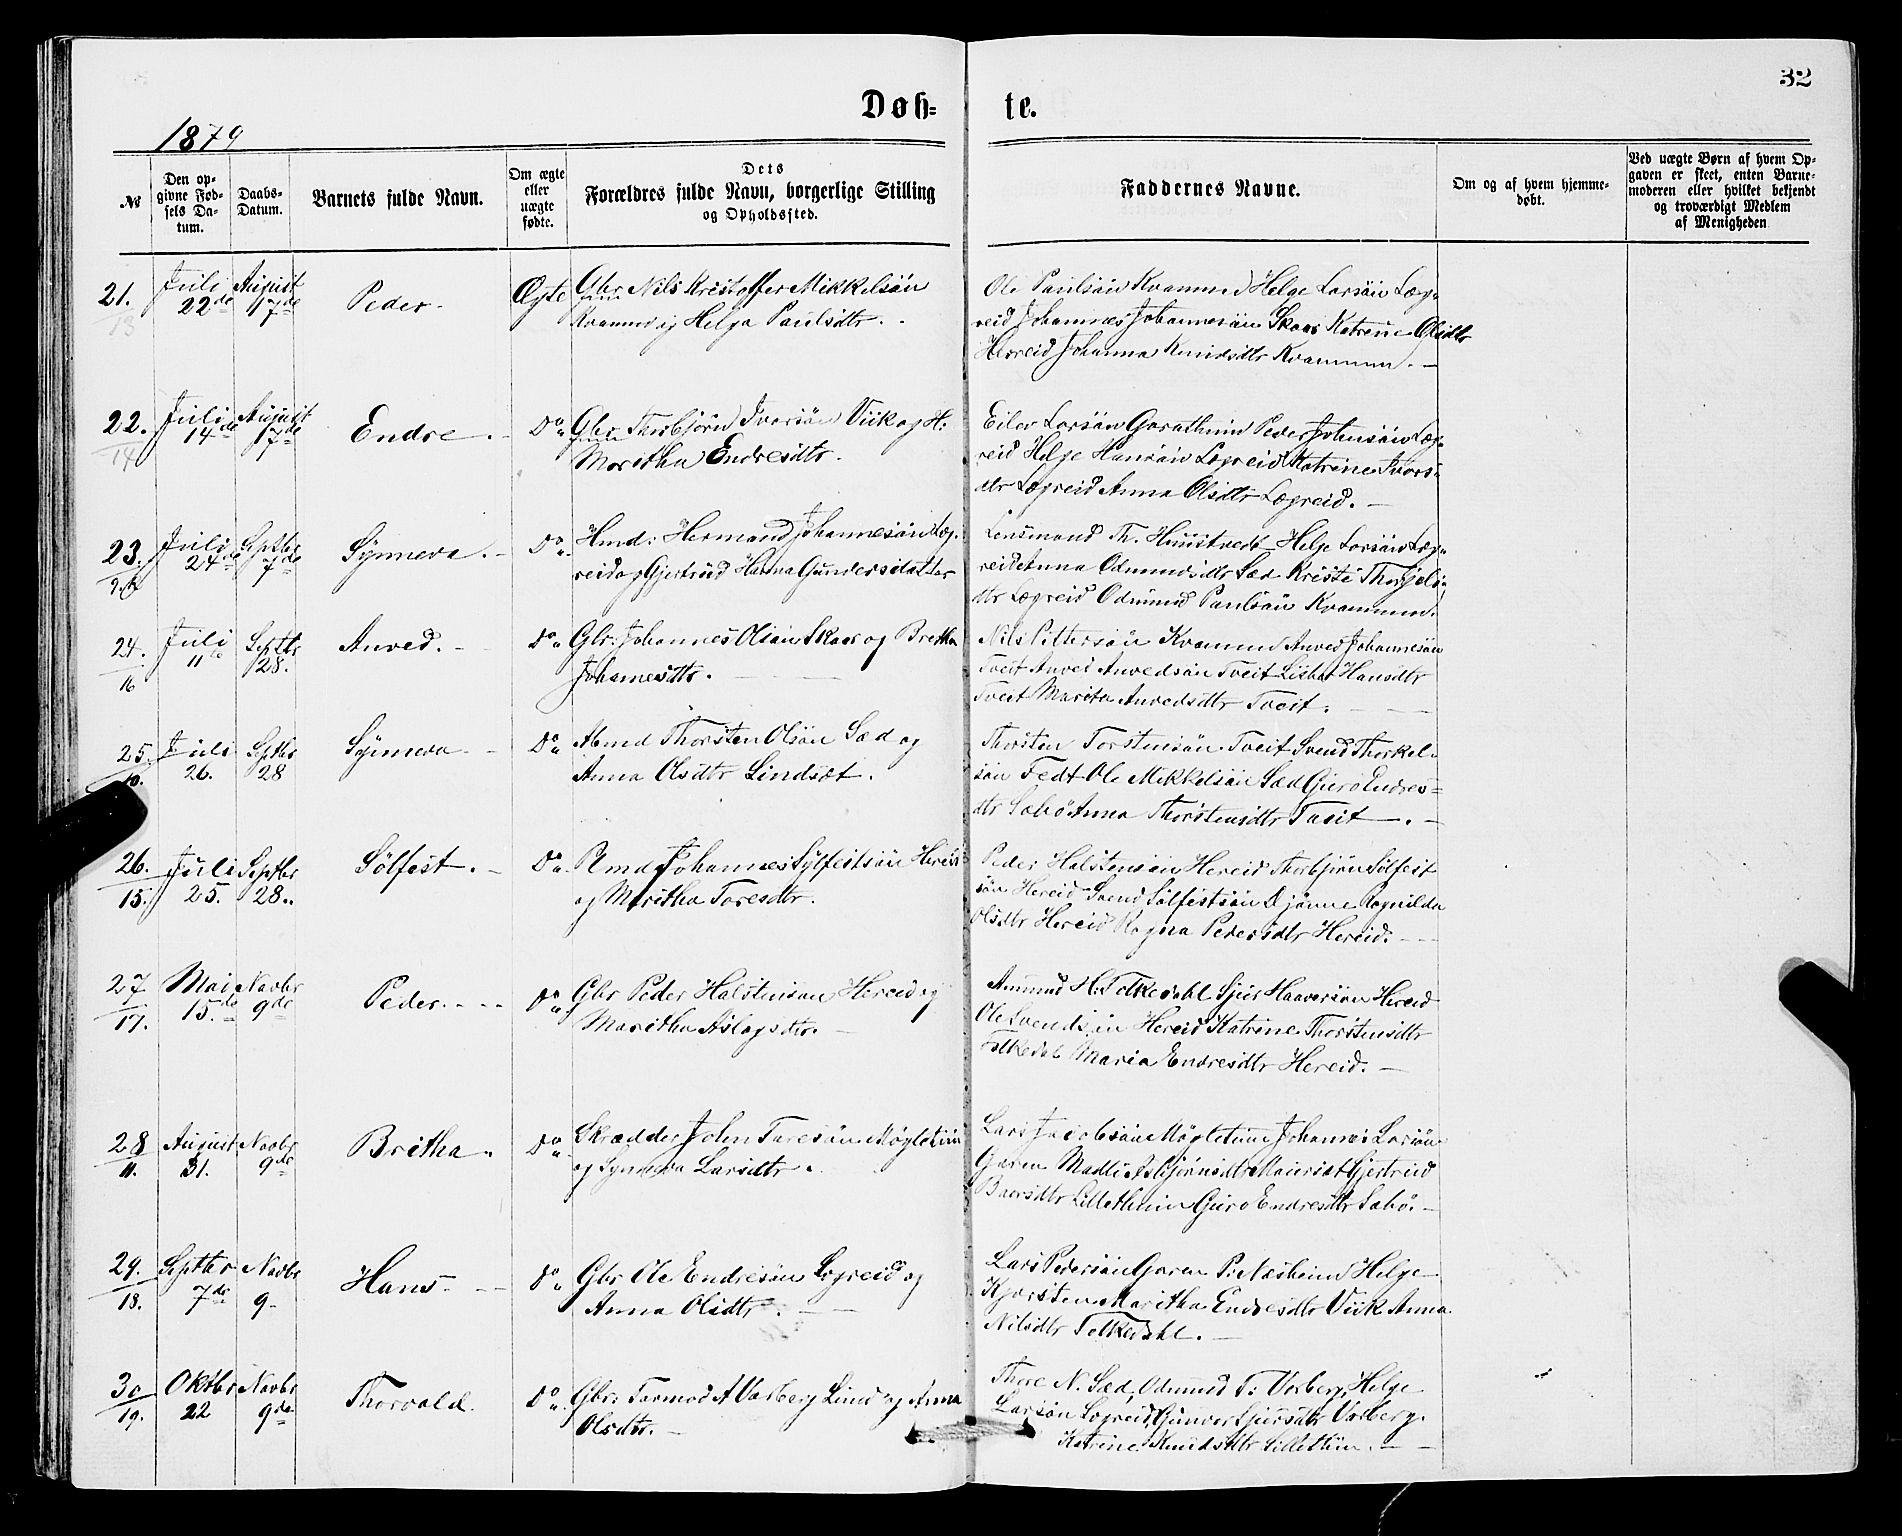 32
Døb=te.
1879
№
Den op-
givne Fød-
sels Da-
tum.
Daabs-
Datum.
Barnets fulde Navn.
Om ægte
eller
uægte
fødte.
Dets
Forældres fulde Navn, borgerlige Stilling
og Opholdssted.
Faddernes Navne.
Om og af hvem hjemme-
døbt.
Ved uægte Børn af hvem Op-
gaven er skeet, enten Barne-
moderen eller hvilket bekjendt
og troværdigt Medlem
af Menigheden
21.
13
Juli
22de
August
17de
Peder
Ægte
Gbr Nils Kristoffer Mikkelsön
Kvammen og Helga Paulsdtr.
Ole Paulsön Kvammen Helge Larsön Læg-
reid Johannes Johannesön Skaar Katrine Olsdtr
Hereid Johanna Knudsdtr Kvammen.
22.
14
Juli
14de
August
17de
Endre.
Do
Gbr Thorbjörn Ivarsön Viik og H:
Maritha Endresdtr.
Eilev Larsön Garathun Peder Johnsön Læg-
reid Helge Hansön Lægreid Katrine Ivars-
dtr Lægreid Anna Olsdtr Lægreid.
23.
Juli
24de
Septbr
7de
Synneva.
Do
Hmd: Hermand Johannesön Læg-
reid og Gjertrud Hanna Gundersdatter
Lensmand Th. Huustvedt Helge Larsön Læg-
reid Anna Odmundsdtr Sæd Kristi Thorgjels-
dtr Lægreid Odmund Paulsön Kvammen.
24.
16
Juli
11te
Septbr
28.
Anved.
Do
Gbr: Johannes Olsön Skaar og Britha
Johannesdtr.
Nils Pittersön Kvammen Anved Johannesön
Tveit Anved Anvedsön Tveit Lisbet Hansdtr
Tveit Marita Anvedsdtr Tveit.
25.
10.
Juli
26.
Septbr
28
Synneva
Do
Thorsten Olsön Sæd og
Anna Olsdtr Lindsæt.
Thorsten Torstensön Tveit Svend Thorkel-
sön Fedt Ole Mikkelsön Sæd Guro Endres=
dtr Sæbö Anna Thorstensdtr Tveit.
26.
15.
Juli
25.
Septbr
28.
Sölfest.
Do
Pmd Johannes Sylfestsön Hereid
og Maritha Toresdtr.
Peder Halstensön Hereid Thorbjörn Sölfest
sön Hereid Svend Sölfestsön Djönne Ragnilda
Olsdtr Hereid Ragna Pedersdtr Hereid.
27
17.
Mai
15.de
Novbr
9de
Peder.
Do
Gbr Peder Halstensön Hereid og
Maritha Aslagsdtr.
Aamund H: Folkedahl Sjur Haaversön Hereid
Ole Svendsön Hereid Katrine Thorstensdtr
Folkedal Maria Endresdtr Hereid.
28
11.
August
31.
Novbr
9de
Britha.
Do
Skrædder John Taresön Mögletun
og Synneva Larsdtr.
Lars Jacobsön Mögletun Johannes Larsön
Garen Madli Asbjörnsdtr Maursæt Gjertrud
Baarsdtr Lillethun Guro Endresdtr Sæbö.
29.
18.
Septbr
7de
Novbr
9
Hans.
Do
Gbr Ole Endresön Lægreid og
Anna Olsdtr.
Lars Pedersön Garen P. Næsheim Helge
Kjærsten Maritha Endresdtr Viik Anna
Nilsdtr Folkedahl.
30
19.
Oktbr
22
Novbr
9de
Thorvald.
Do
Gbr: Tormod A Varberg Lund og Anna
Olsdtr.
Thore N. Sæd, Odmund T: Varberg, Helge
Larsön Lægreid, Gunvor Sjursdtr Varberg.
Katrine Knudsdtr Lillethun.